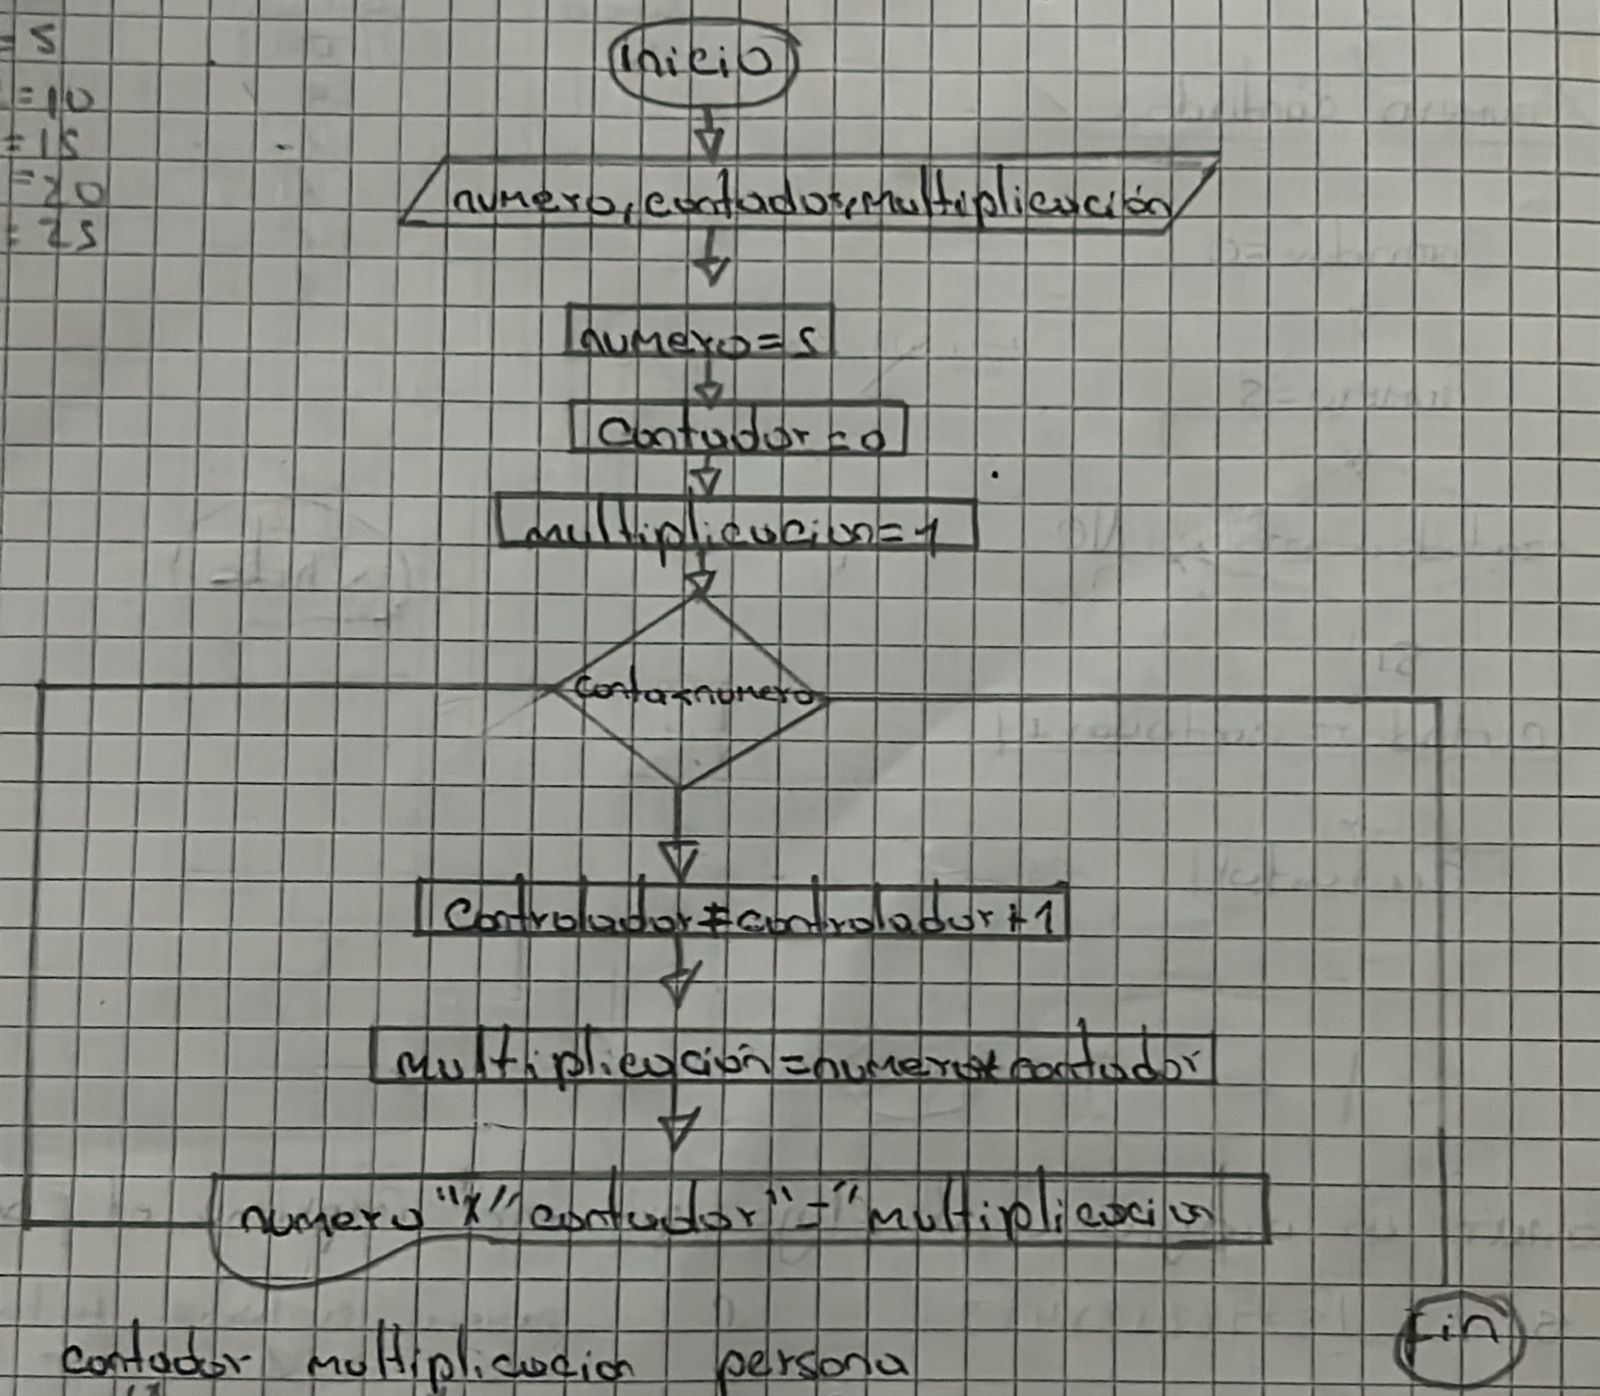 = 5
= 10
= 15
= 20
= 25
inicio
numero, contador, multiplicación
numero = 5
Contador = 0
multiplicacion = 1
conta < numero
Controlador = controlador + 1
multiplicación = numero * contador
numero "x" contador "=" multiplicacion
Fin
contador multiplicacion persona